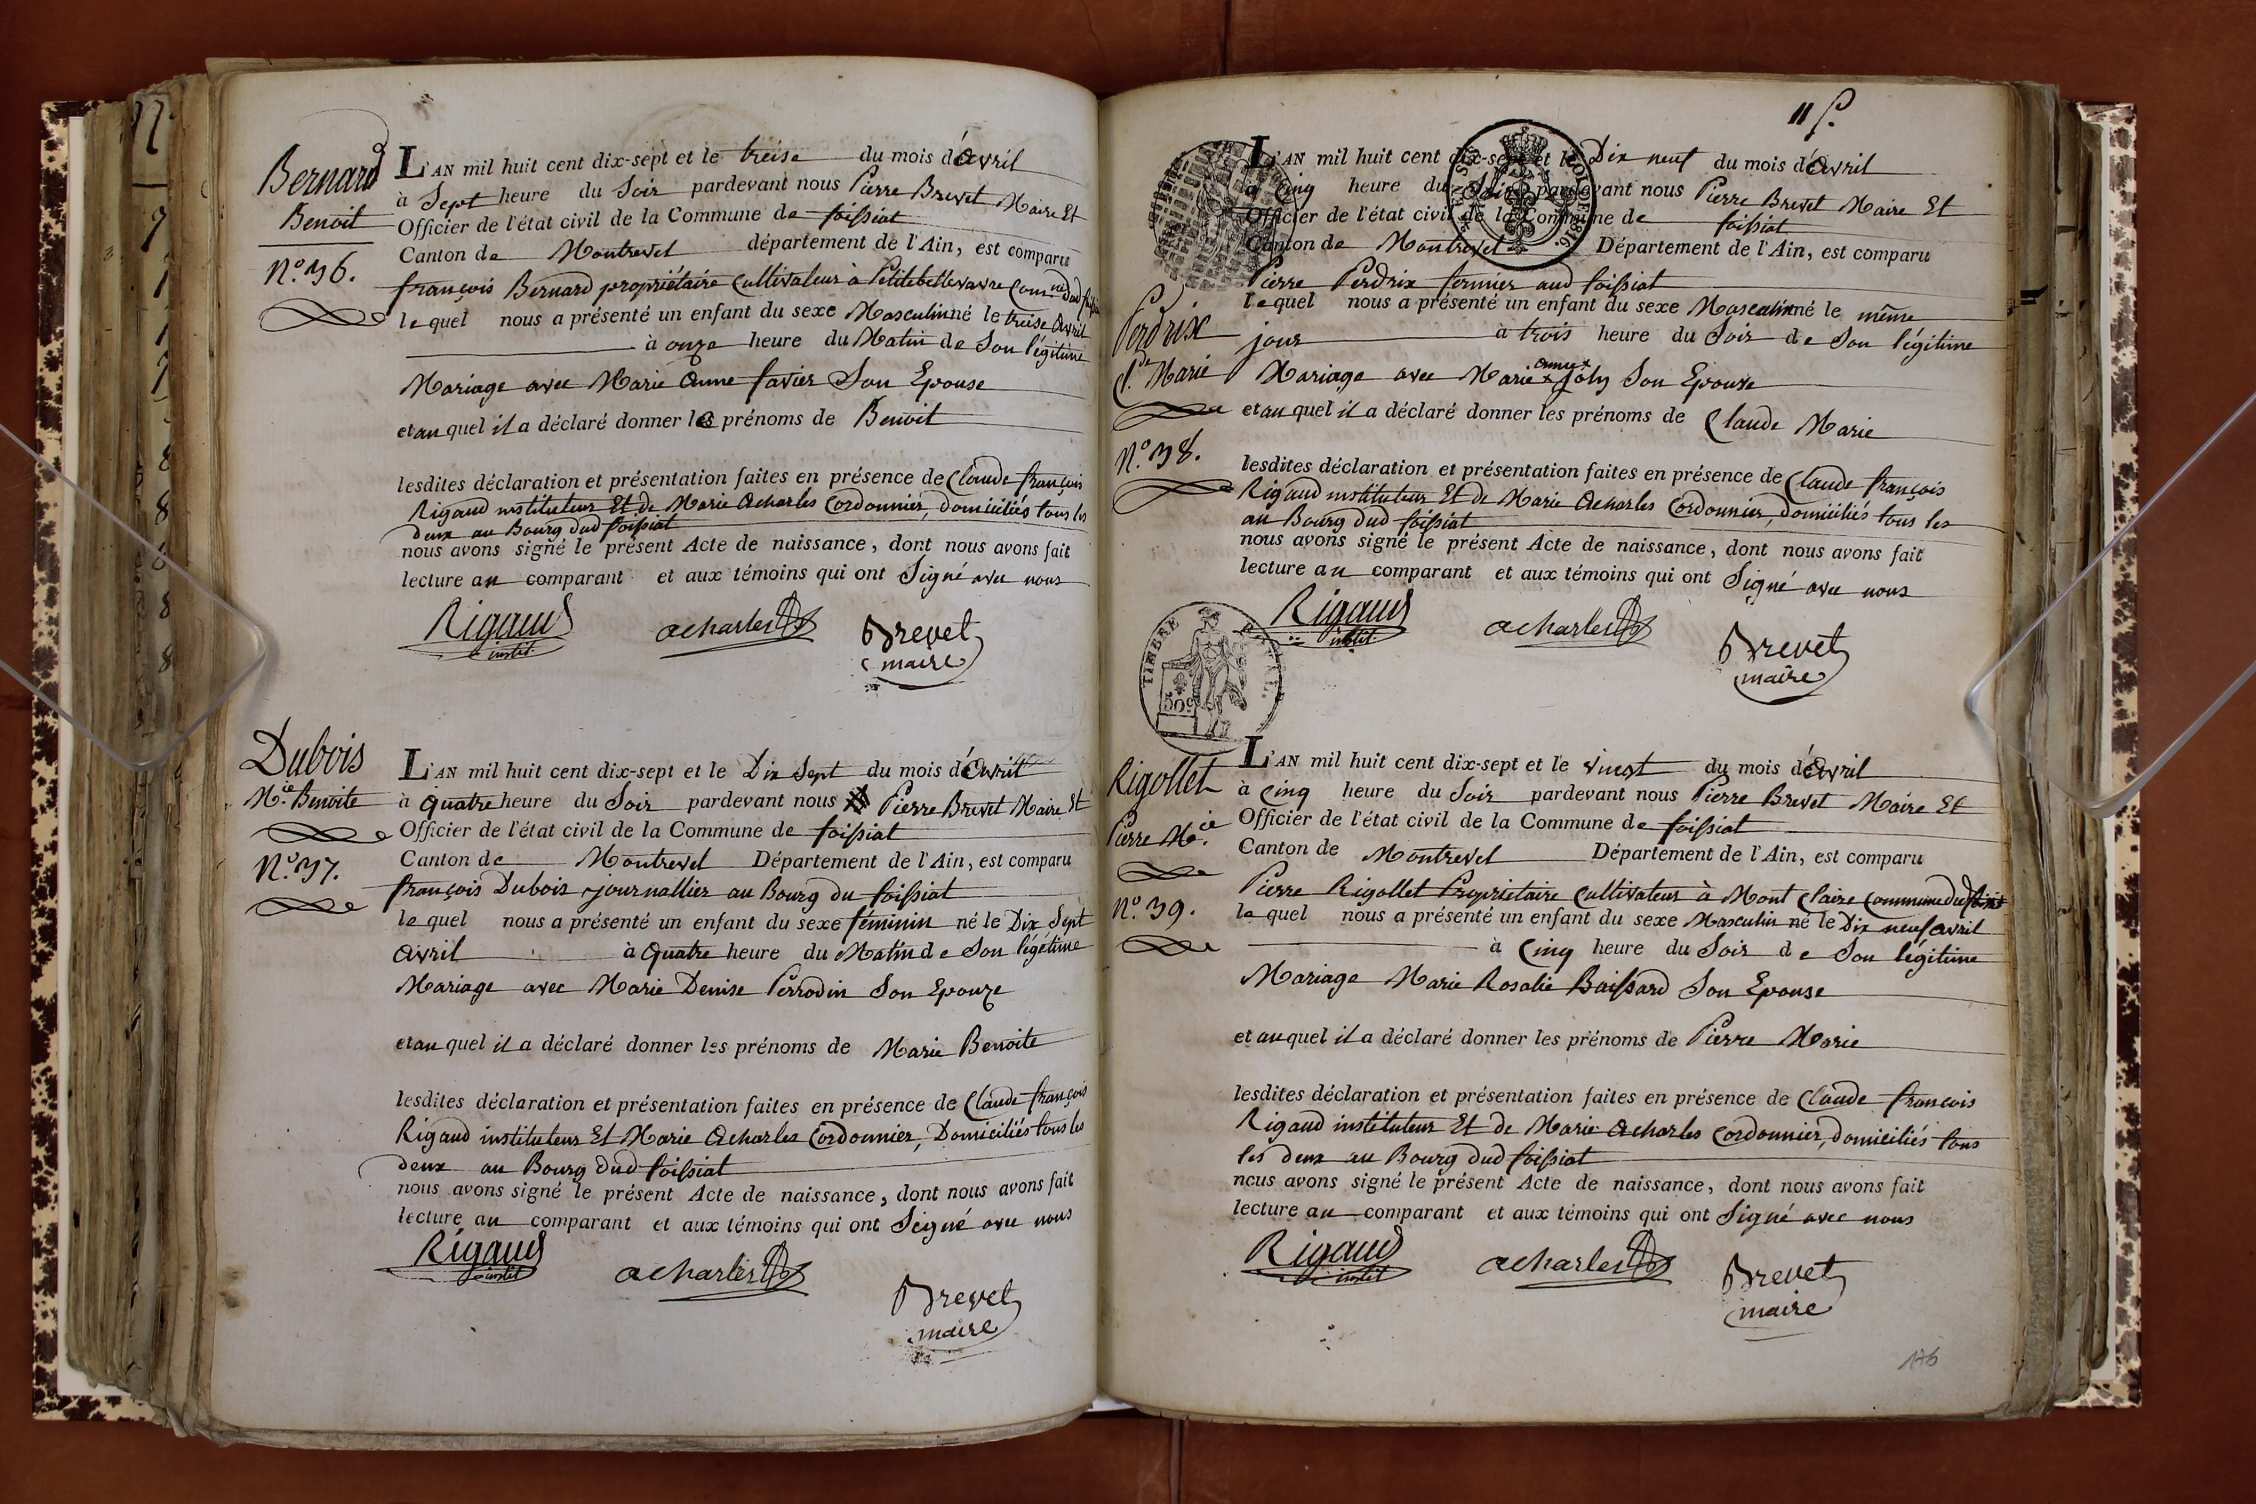 Bernard
Benoit
N.o 36.
L'AN mil huit cent dix-sept et le treise du mois d'avril
à Sept heure du Soir pardevant nous Pierre Brevet Maire Et
Officier de l'état civil de la Commune de foissiat
Canton de Montrevel département de l'Ain, est comparu
françois Bernard propriétaire Cultivateur à Petitebellevavre Comne dud foissiat
lequel nous a présenté un enfant du sexe Masculin né le treise avril
à onze heure du Matin de Son légitime
Mariage avec Marie Anne favier Son Epouse
et auquel il a déclaré donner les prénoms de Benoit
lesdites déclaration et présentation faites en présence de Claude françois
Rigaud instituteur Et de Marie Acharles Cordonnier, domiciliés tous les
deux au Bourg dud foissiat
nous avons signé le présent Acte de naissance, dont nous avons fait
lecture au comparant et aux témoins qui ont Signé avec nous
Rigaud instit
acharles
Brevet
maire
Dubois
Mie Benoite
N.o 37.
L'AN mil huit cent dix-sept et le Dix Sept du mois d'avril
à quatre heure du Soir pardevant nous Pierre Brevet Maire Et
Officier de l'état civil de la Commune de foissiat
Canton de Montrevel Département de l'Ain, est comparu
françois Dubois journallier au Bourg du foissiat
lequel nous a présenté un enfant du sexe féminin né le Dix Sept
avril à quatre heure du Matin de Son légétime
Mariage avec Marie Denise Perrodin Son Epouze
et auquel il a déclaré donner les prénoms de Marie Benoite
lesdites déclaration et présentation faites en présence de Claude françois
Rigaud instituteur Et Marie Acharles Cordonnier, Domiciliés tous les
deux au Bourg dud foissiat
nous avons signé le présent Acte de naissance, dont nous avons fait
lecture au comparant et aux témoins qui ont Seigné avec nous
Rigaud instit
acharles
Brevet
maire
Perdrix
Cde Marie
N.o 38.
L'AN mil huit cent dix-sept et le Dix neuf du mois d'avril
à Cinq heure du Soir pardevant nous Pierre Brevet Maire Et
Officier de l'état civil de la Commune de foissiat
Canton de Montrevel Département de l'Ain, est comparu
Pierre Perdrix fermier aud foissiat
lequel nous a présenté un enfant du sexe Masculin né le même
jour à trois heure du Soir de Son légitime
anne
Mariage avec Marie x Joly Son Epouse
et auquel il a déclaré donner les prénoms de Claude Marie
lesdites déclaration et présentation faites en présence de Claude françois
Rigaud instituteur Et de Marie Acharles Cordonnier, Domiciliés tous les
au Bourg dud foissiat
nous avons signé le présent Acte de naissance, dont nous avons fait
lecture au comparant et aux témoins qui ont Signé avec nous
Rigaud instit
acharles
Brevet
maire
TIMBRE ROYAL
50c
Rigollet
Pierre Mie
N.o 39.
L'AN mil huit cent dix-sept et le vingt du mois d'avril
à Cinq heure du Soir pardevant nous Pierre Brevet Maire Et
Officier de l'état civil de la Commune de foissiat
Canton de Montrevel Département de l'Ain, est comparu
Pierre Rigollet Propriétaire Cultivateur à Mont Claire Commune dud foissiat
lequel nous a présenté un enfant du sexe Masculin né le Dix neuf avril
à Cinq heure du Soir de Son légitime
Mariage Marie Rosalie Baissard Son Epouse
et auquel il a déclaré donner les prénoms de Pierre Marie
lesdites déclaration et présentation faites en présence de Claude françois
Rigaud instituteur Et de Marie Acharles Cordonnier, domiciliés tous
les deux au Bourg dud foissiat
nous avons signé le présent Acte de naissance, dont nous avons fait
lecture au comparant et aux témoins qui ont Signé avec nous
Rigaud instit
acharles
Brevet
maire